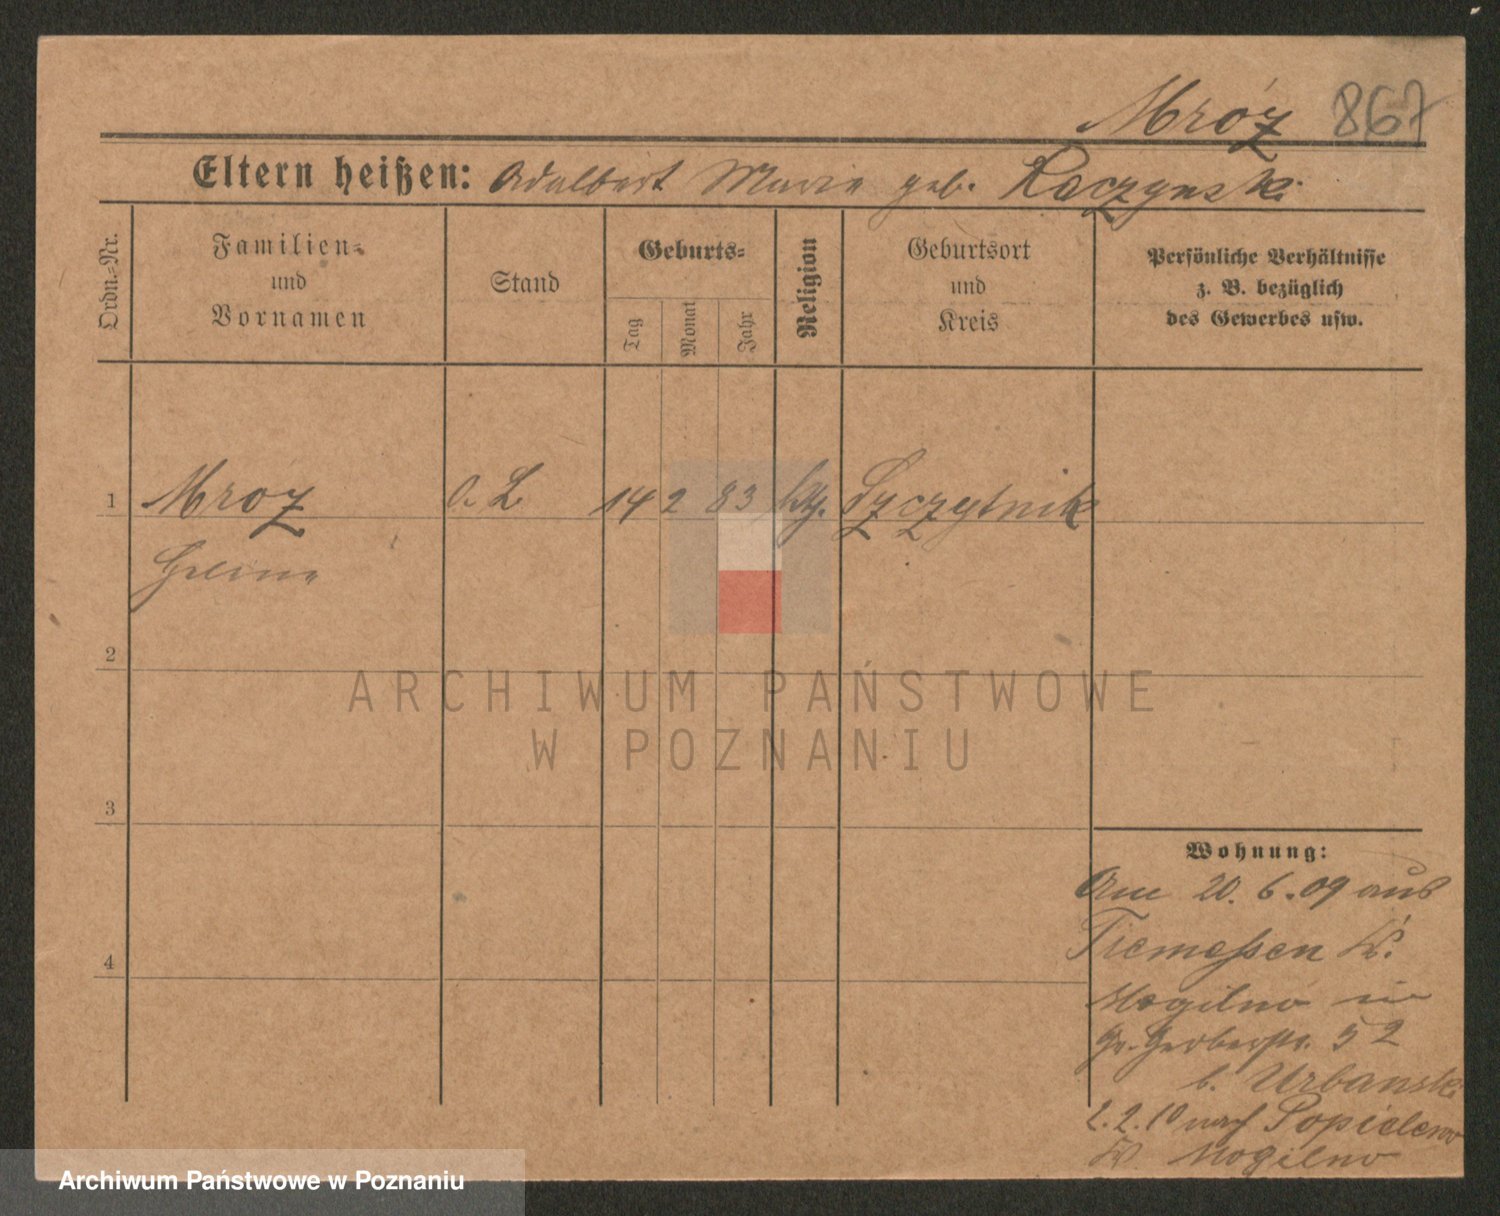 Mróz 867
Eltern heißen: Adalbert Marie geb. Raczynski
Ordn.=Nr.
Familien=
und
Vornamen
Stand
Geburts=
Tag
Monat
Jahr
Religion
Geburtsort
und
Kreis
Persönliche Verhältnisse
z. B. bezüglich
des Gewerbes usw.
1 Mroz 14 2 83 Szczytnik
Helene
2
3
4
ARCHIWUM PAŃSTWOWE
W POZNANIU
Wohnung:
Am 20. 6. 09 aus
Tremessen K.
Mogilno in
Gr. Gerberstr. 52
b. Urbanski
2. 2. 10 nach Popielewo
K Mogilno
Archiwum Państwowe w Poznaniu